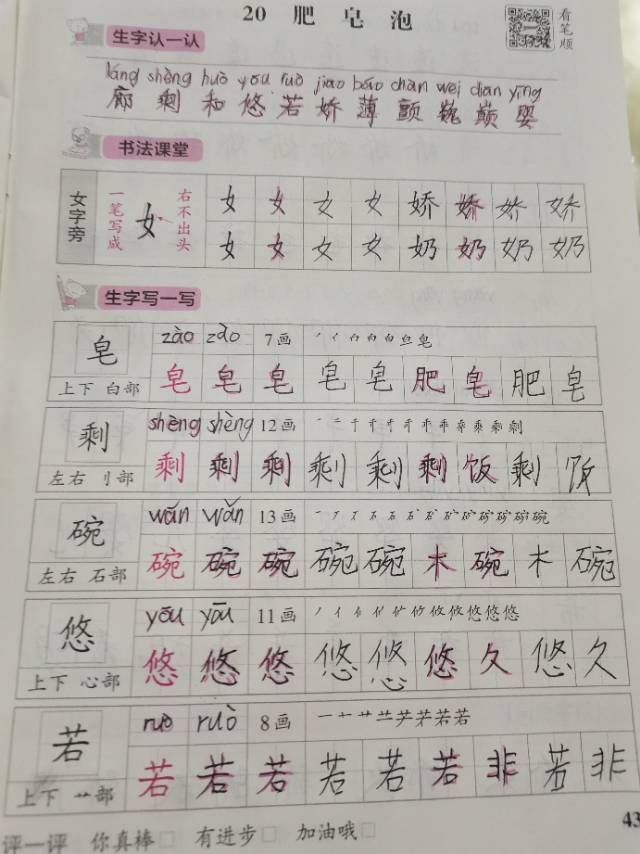 20 肥皂泡
看笔顺
生字认一认
láng shèng huò yōu ruò jiao báo chàn wēi diān yīng
廊 剩 和 悠 若 娇 薄 颤 巍 巅 婴
书法课堂
女字旁 一笔写成 女 右不出头 女 女 女 女 娇 娇 娇 娇
女 女 女 女 奶 奶 奶 奶
生字写一写
皂 zào zào 7画
上下 白部 皂 皂 皂 皂 皂 肥 皂 肥 皂
剩 shèng shèng 12画
左右 刂部 剩 剩 剩 剩 剩 剩 饭 剩 饭
碗 wǎn wǎn 13画
左右 石部 碗 碗 碗 碗 碗 木 碗 木 碗
悠 yōu yōu 11画
上下 心部 悠 悠 悠 悠 悠 悠 久 悠 久
若 ruò ruò 8画
上下 艹部 若 若 若 若 若 若 非 若 非
评一评 你真棒□ 有进步□ 加油哦□
43